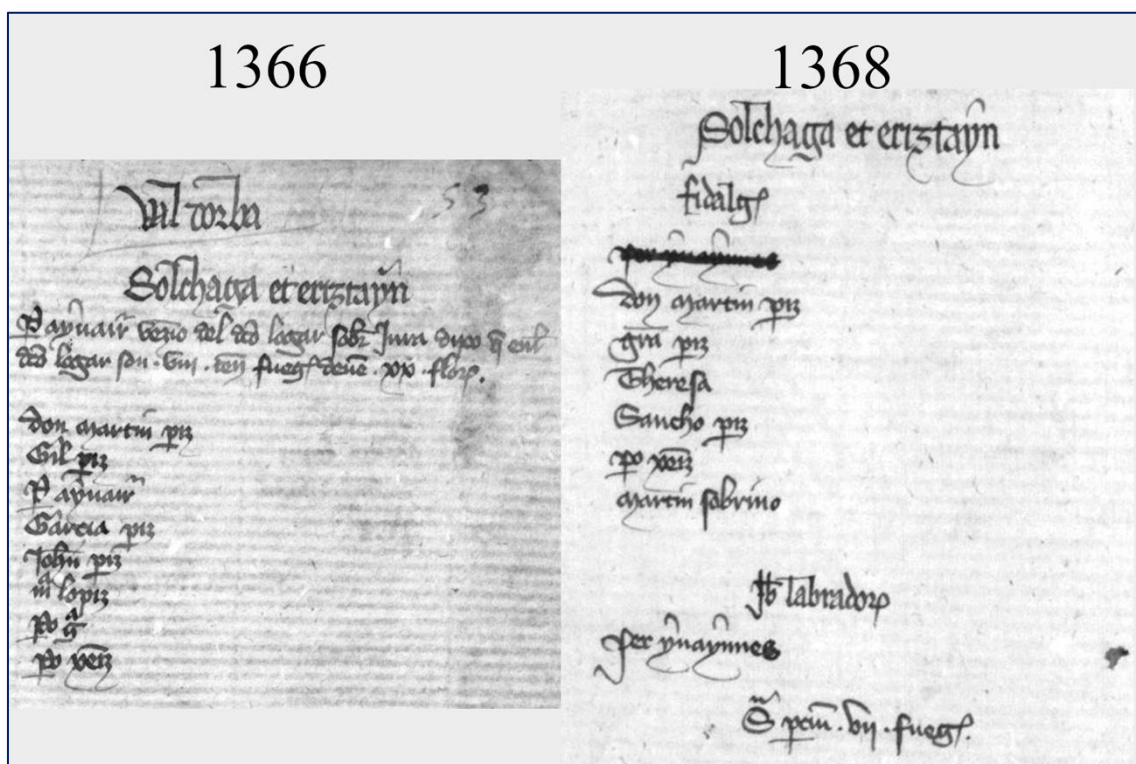 1366
Val dorba
53
Solchaga et eriztayn
P aynair vezio del dco logar sobr Jura dixo q enl
dco logar son . viii . ten fueg deue . xx . flor.
don martin piz
Gil piz
P aynair
Garcia piz
Johan piz
mª lopiz
Po gª
Po xeiz
1368
Solchaga et eriztayn
fidalg
per ynaynnes
don martin piz
gra piz
Theresa
Sancho piz
po xeiz
martin sobrino
labrador
per ynaynnes
Sª . vii . fueg.